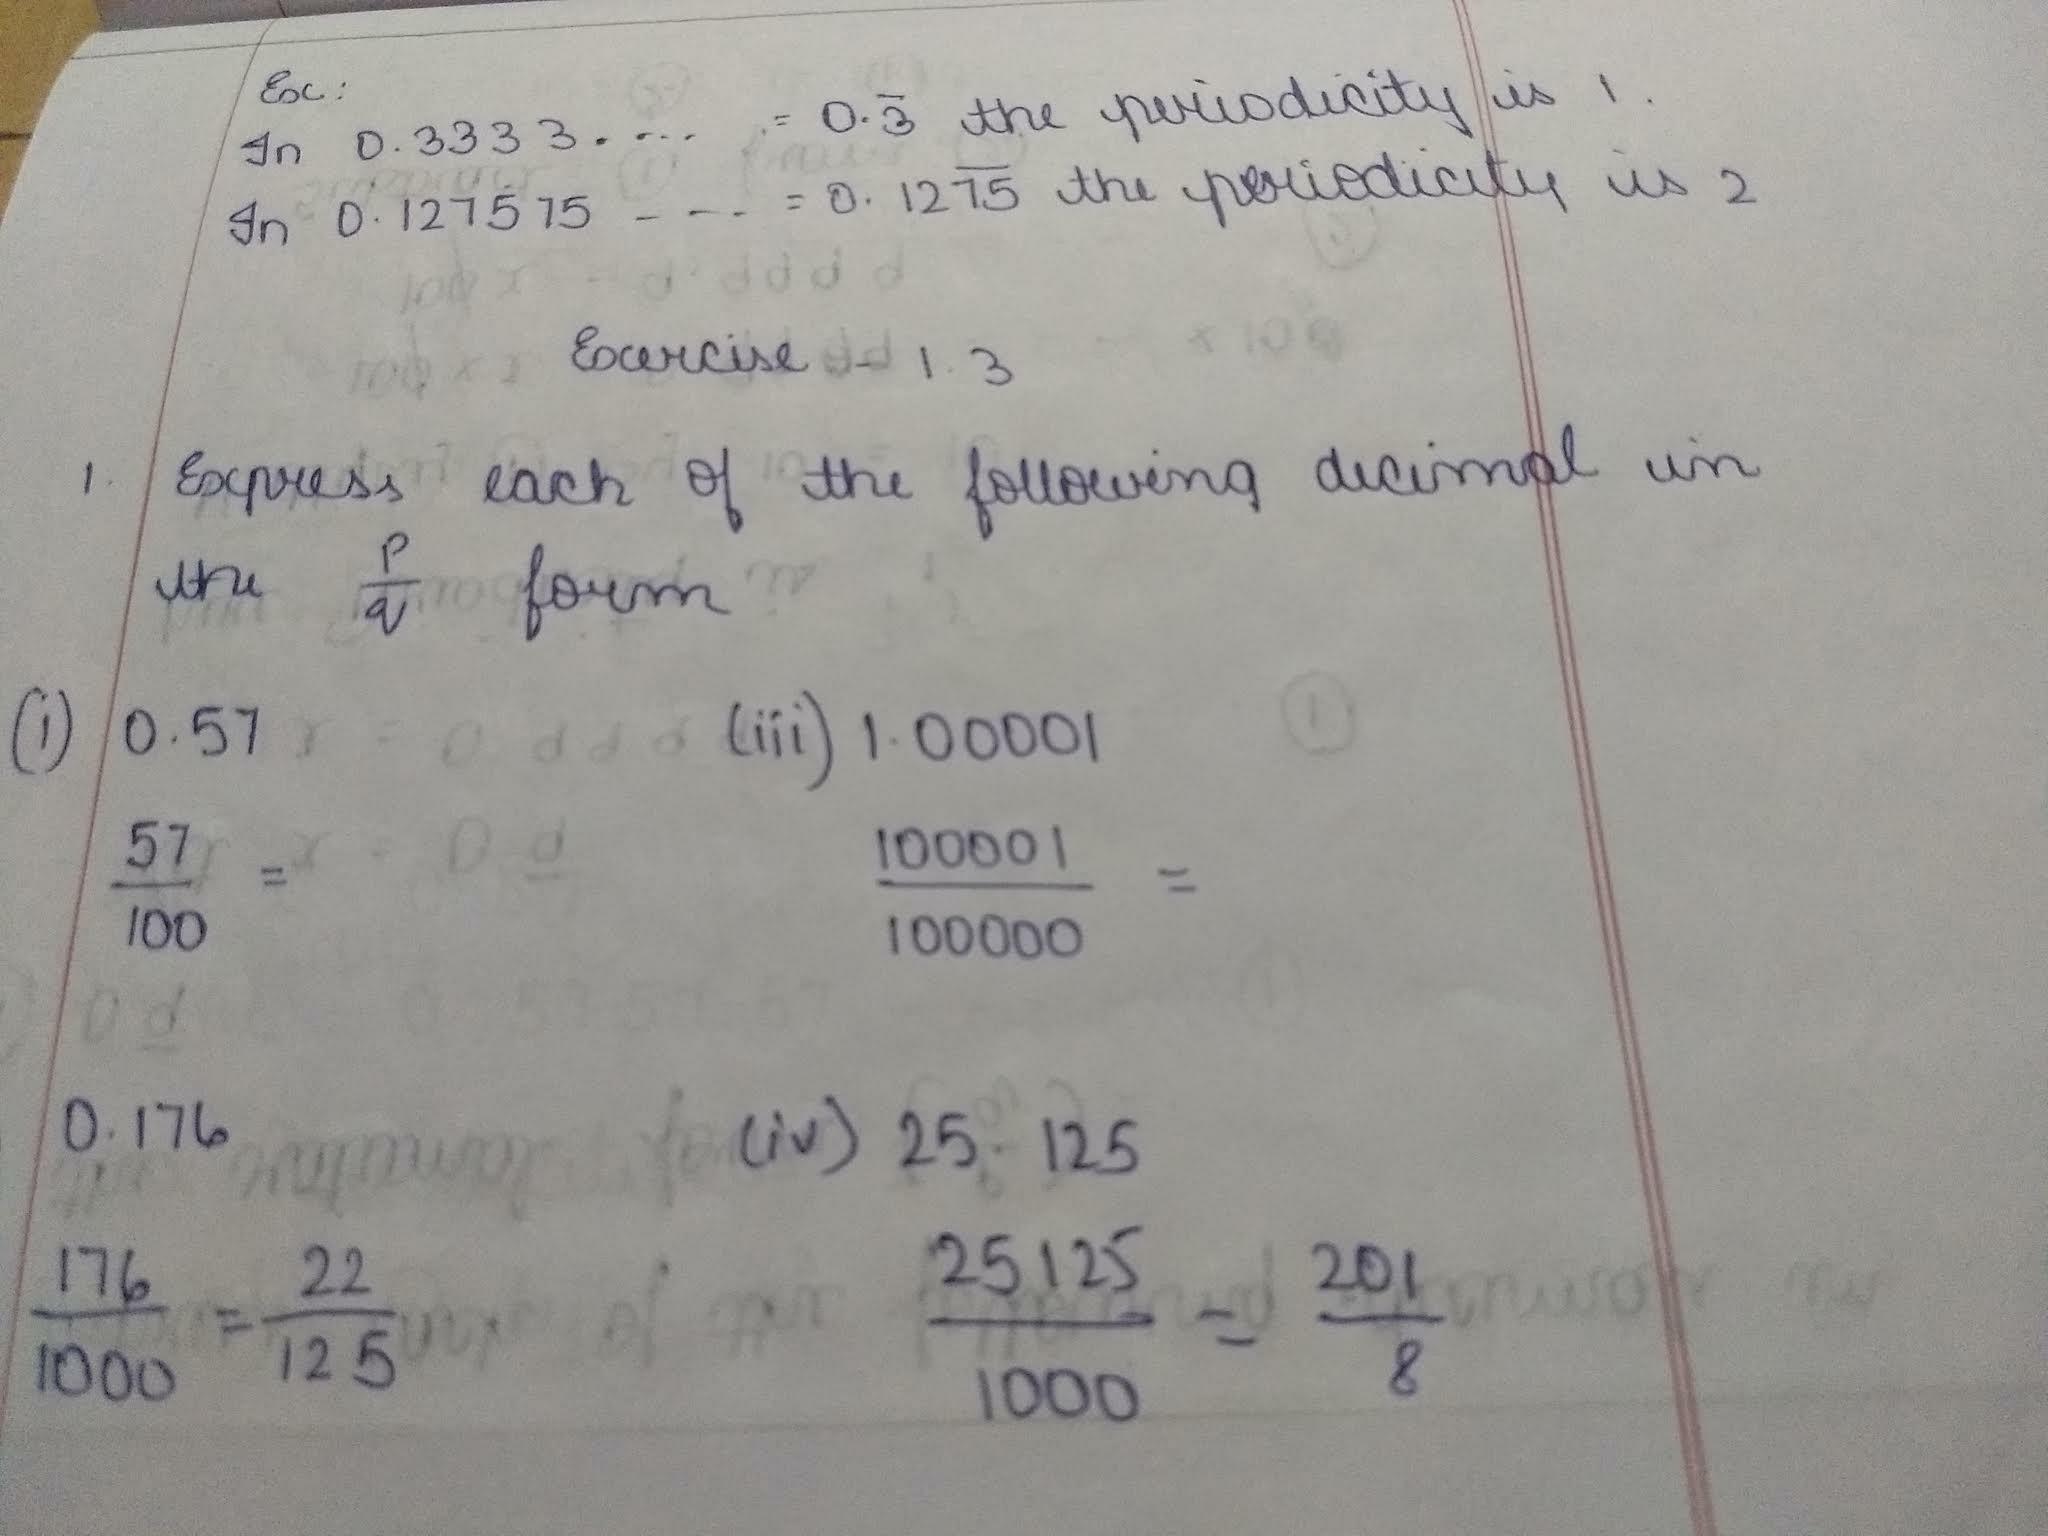 Ex:
In 0.3333. ... = 0.3̅ the periodicity is 1.
In 0.127575 - - - . = 0.127̅5̅ the periodicity is 2
Exercise - 1.3
1. Express each of the following decimal in
the p/q form
(i) 0.57 (iii) 1.00001
57/100 = 100001/100000 =
0.176 (iv) 25.125
176/1000 = 22/125 25125/1000 = 201/8